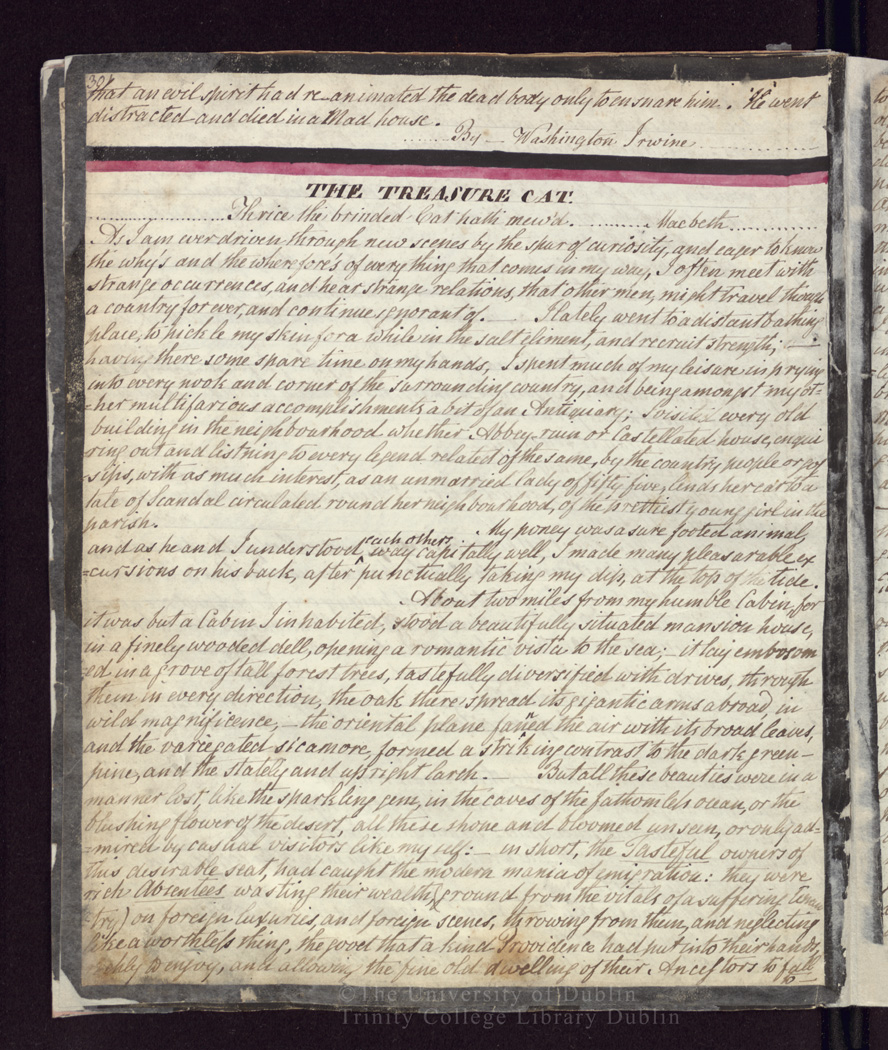 30
that an evil spirit had re-animated the dead body only to ensnare him. He went
distracted and died in a Mad house.
By — Washington Irwine
THE TREASURE CAT.
Thrice the brinded Cat hath mew'd. Macbeth
As I am ever driven through new scenes by the spur of curiosity, and eager to know
the why's and the wherefore's of every thing that comes in my way, I often meet with
strange occurrences, and hear strange relations, that other men, might travel though
a country for ever, and continue ignorant of. — I lately went to a distant bathing
place, to pickle my skin for a while in the salt eliment, and recruit strength; —
having there some spare time on my hands, I spent much of my leisure in prying
into every nook and corner of the surrounding country, and being amongst my ot=
=her multifarious accomplishments a bit of an Antiquary; I visited every old
building in the neighbourhood whether Abbey-ruin or Castellated house, enqui
ring out and listning to every legend related of the same, by the country people or gos
=sips, with as much interest, as an unmarried lady of fifty five, lends her ear to a
tale of Scandal circulated round her neighbourhood, of the prettiest young girl in the
parish. My poney was a sure footed animal,
and as he and I understood each others way capitally well, I made many pleasarable ex
=cursions on his back, after punctually taking my dip, at the top of the tide.
About two miles from my humble Cabin, for
it was but a Cabin I inhabited, stood a beautifully situated mansion house,
in a finely wooded dell, opening a romantic vista to the sea; — it lay embosom
=ed in a grove of tall forest trees, tastefully diversified with drives, through
them in every direction, the oak there spread its gigantic arms abroad in
wild magnificence, — the oriental plane fanned the air with its broad leaves,
and the variegated sicamore, formed a striking contrast to the dark green —
pine, and the stately and upright larch. — But all these beauties were in a
manner lost, like the sparkling gem, in the caves of the fathomless ocean, or the
blushing flower of the desert, all these shone and bloomed unseen, or only ad=
=mired by casual visitors like my self: — in short, the Tasteful owners of
this desirable seat, had caught the modern mania of emigration: they were
rich Absentees wasting their wealth, (ground from the vitals of a suffering Tenan
try) on foreign luxuries and foreign scenes, throwing from them, and neglecting
like a worthless thing, the good that a kind Providence had put into their hands
to enjoy, and allowing the fine old dwelling of their Ancestors to fall
to —
©The University of Dublin
Trinity College Library Dublin